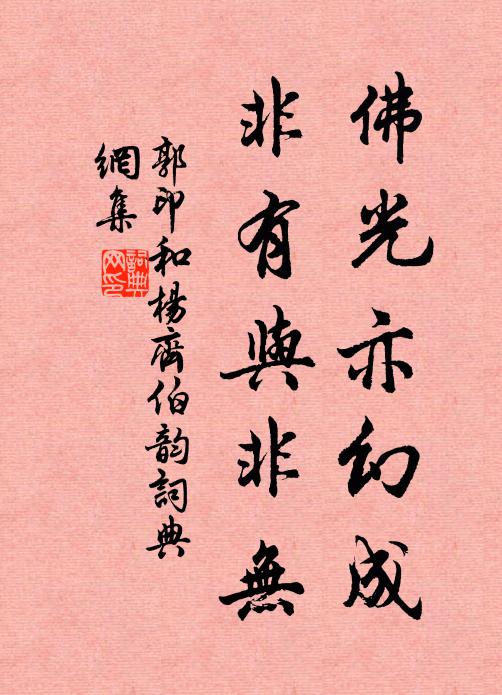 佛光亦幻成
非有與非無
郭印和楊齊伯韵詞典
網集
詞典网印